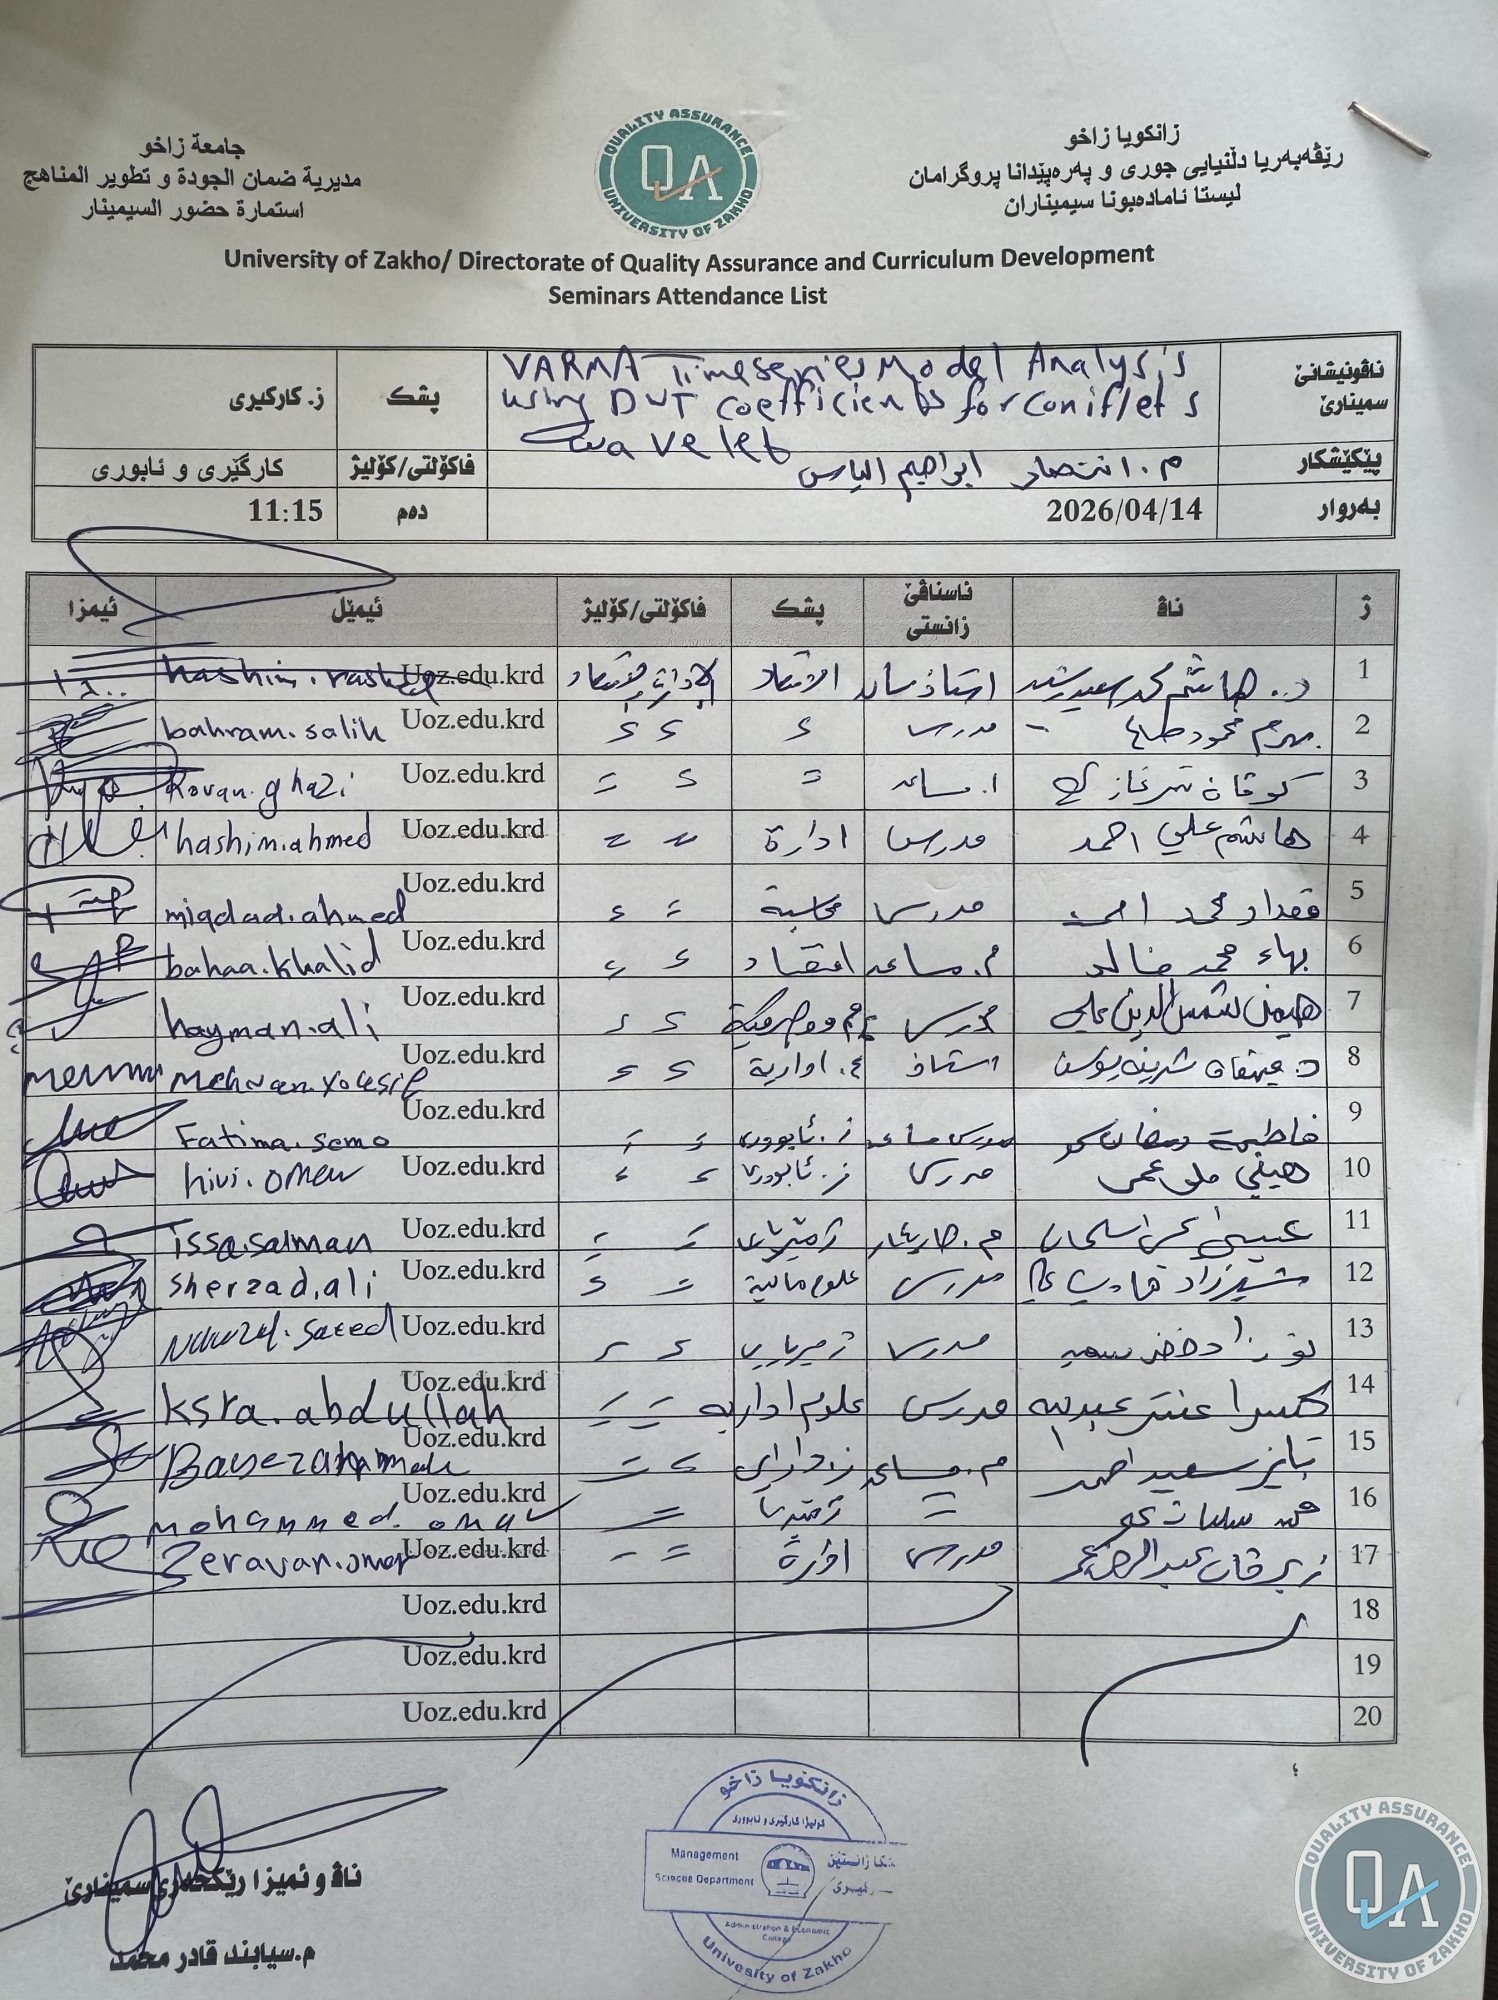 زانكويا زاخو
رێڤەبەریا دڵنیایی جوری و پەرەپێدانا پروگرامان
لیستا ئامادەبونا سیمیناران
QUALITY ASSURANCE
QA
UNIVERSITY OF ZAKHO
جامعة زاخو
مديرية ضمان الجودة و تطوير المناهج
استمارة حضور السيمينار
University of Zakho/ Directorate of Quality Assurance and Curriculum Development
Seminars Attendance List
ناڤونیشانێ سمینارێ
VARMA Timeseries Model Analysis
using DWT coefficients for coniflets
wavelet
پشک ز. كارگیری
پێکێشکار م. انتصار ابراهيم الياس فاکۆلتی/کۆلیژ کارگێری و ئابوری
بەروار 2026/04/14 دەم 11:15
ژ ناڤ ناسناڤێ زانستی پشک فاکۆلتی/کۆلیژ ئیمێل ئیمزا
1 د. هاشم محمد سعيد رشيد استاذ مساعد الاقتصاد الادارة والاقتصاد hashim.rashed Uoz.edu.krd
2 محمود صالح مدرس bahram.salih Uoz.edu.krd
3 ا. مساعد Kovan.ghazi Uoz.edu.krd
4 هاشم علي احمد مدرس ادارة hashim.ahmed Uoz.edu.krd
5 مقداد محمد امين مدرس محاسبة miqdad.ahmed Uoz.edu.krd
6 بهاء محمد خالد م. مساعد اقتصاد bahaa.khalid Uoz.edu.krd
7 هيمن شمس الدين علي مدرس hayman.ali Uoz.edu.krd
8 د. شريف يوسف استاذ ع. ادارية Mehvan.yousif Uoz.edu.krd
9 فاطيمة رمضان مدرس مساعد ز. ئابووری Fatima.semo Uoz.edu.krd
10 هيڤي عمر مدرس ز. ئابووری hivi.omer Uoz.edu.krd
11 عيسى سلمان م. ژمێریاری issa.salman Uoz.edu.krd
12 شيرزاد علي مدرس علوم مالية sherzad.ali Uoz.edu.krd
13 نوزاد خضر سعيد مدرس ژمیریاری Nawzad.saeed Uoz.edu.krd
14 كسرا عنتر عبدالله مدرس علوم ادارية ksra.abdullah Uoz.edu.krd
15 بايز سعيد احمد م. مساعد ز. دارایی Bayez.ahmed Uoz.edu.krd
16 محمد mohammed.omar Uoz.edu.krd
17 زيرڤان عبدالرحمن عمر مدرس ادارة Zeravan.omer Uoz.edu.krd
18 Uoz.edu.krd
19 Uoz.edu.krd
20 Uoz.edu.krd
ناڤ و ئمیزا رێکخەرێ سمینارێ
م.سیابند قادر محمد
زانکویا زاخو
کولیژا کارگێری و ئابووری
Management
Sciences Department
Administration & Economic
College
University of Zakho
QUALITY ASSURANCE
QA
UNIVERSITY OF ZAKHO